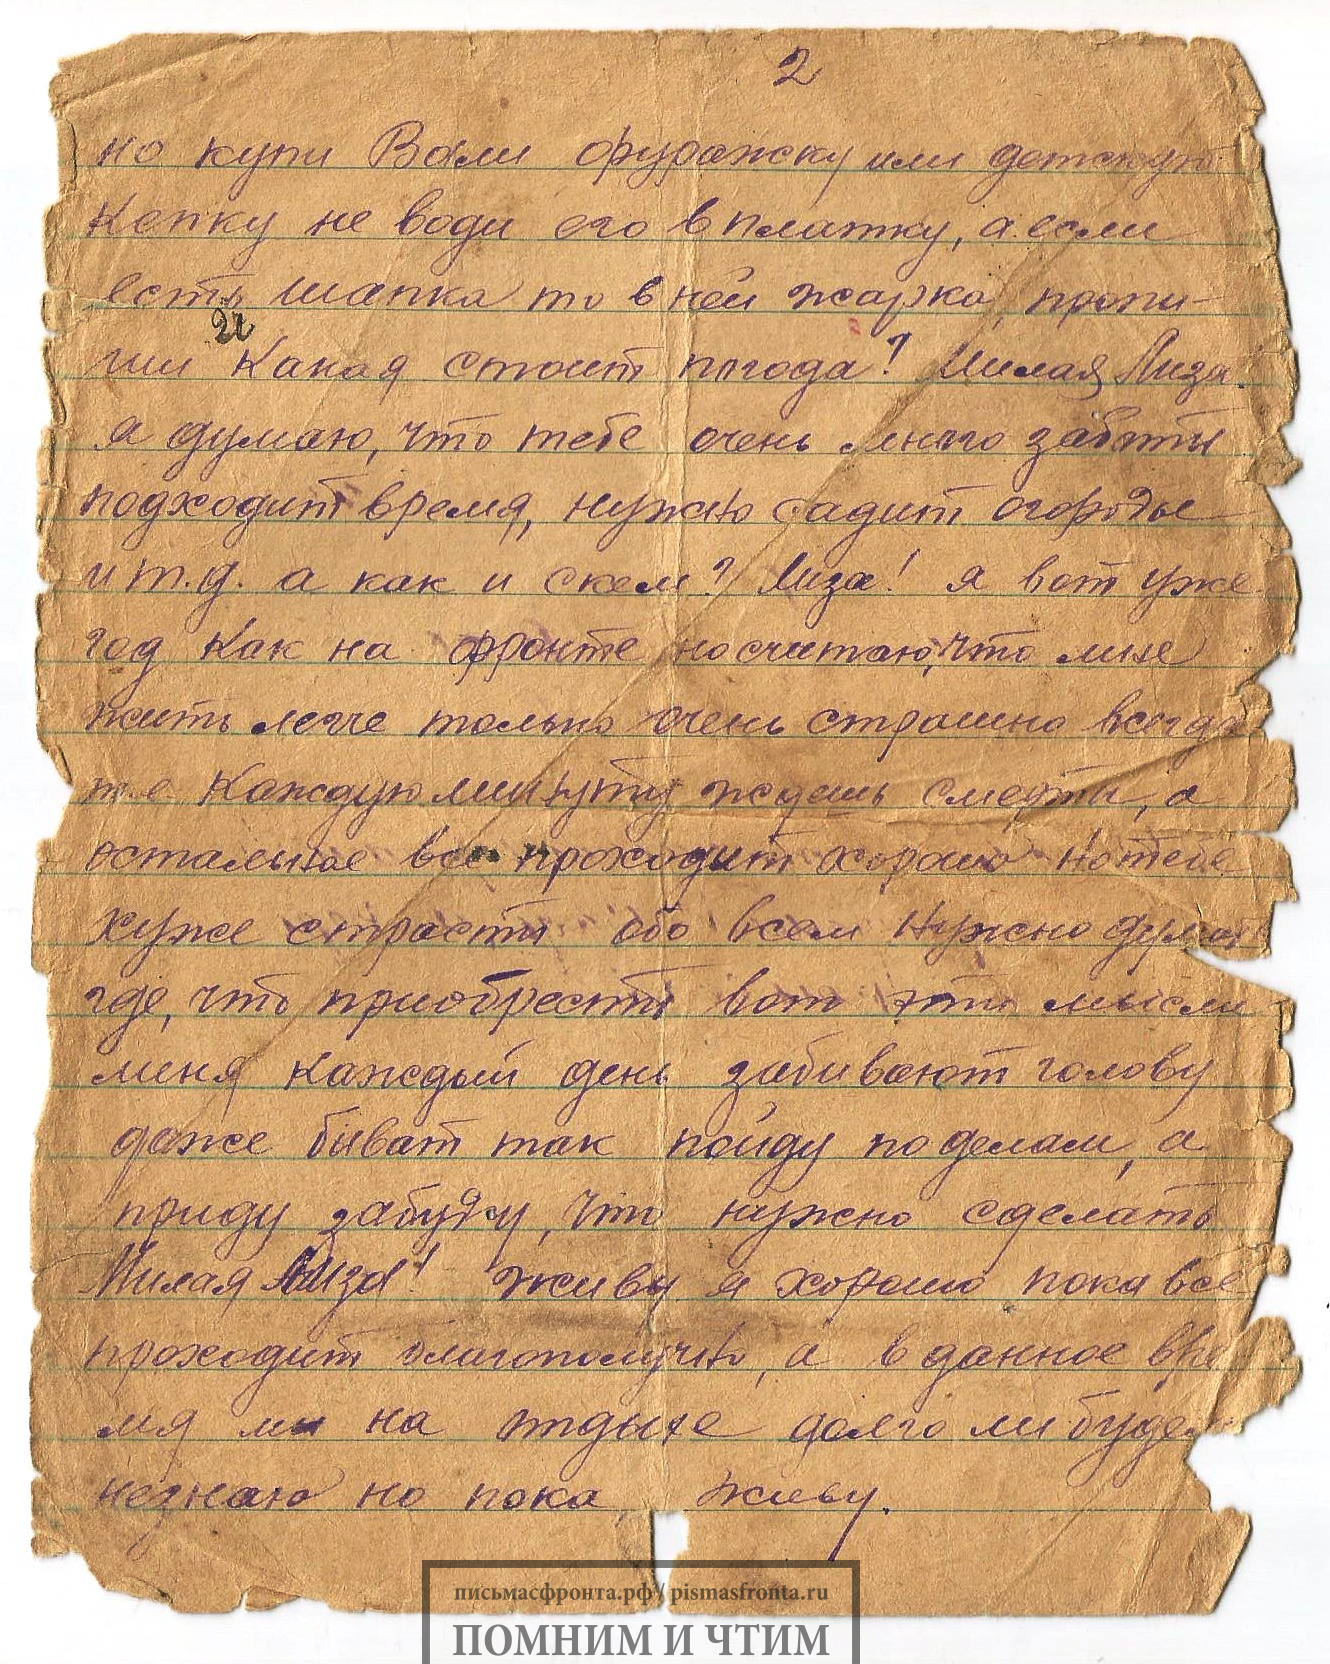 2
но купи Вали фуражку или детскую
Кепку не води его в платку, а если
есть шапка то в ней жарко, пропи-
ши Какая стоит погода? Милая Лиза!
21
я думаю, что тебе очень много заботы
подходит время, нужно садит огороды
и т.д. а как и скем? Лиза! я вот уже
год Как на фронте но считаю, что мне
жить легче только очень страшно всегда
же Каждую минуту ждешь смерти, а
остальное все проходит хорошо Но тебе
хуже страсти обо всем Нужно думат
где, что приобрести вот эти мысли
меня каждый день забивают голову
даже биват так пойду по делам, а
приду забуду, что нужно сделать
Милая Лиза! Живу я хорошо пока все
проходит благополучно, а в данное вре
мя мы на отдыхе долго ли будем
незнаю но пока, живу.
письмасфронта.рф / pismasfronta.ru
ПОМНИМ И ЧТИМ